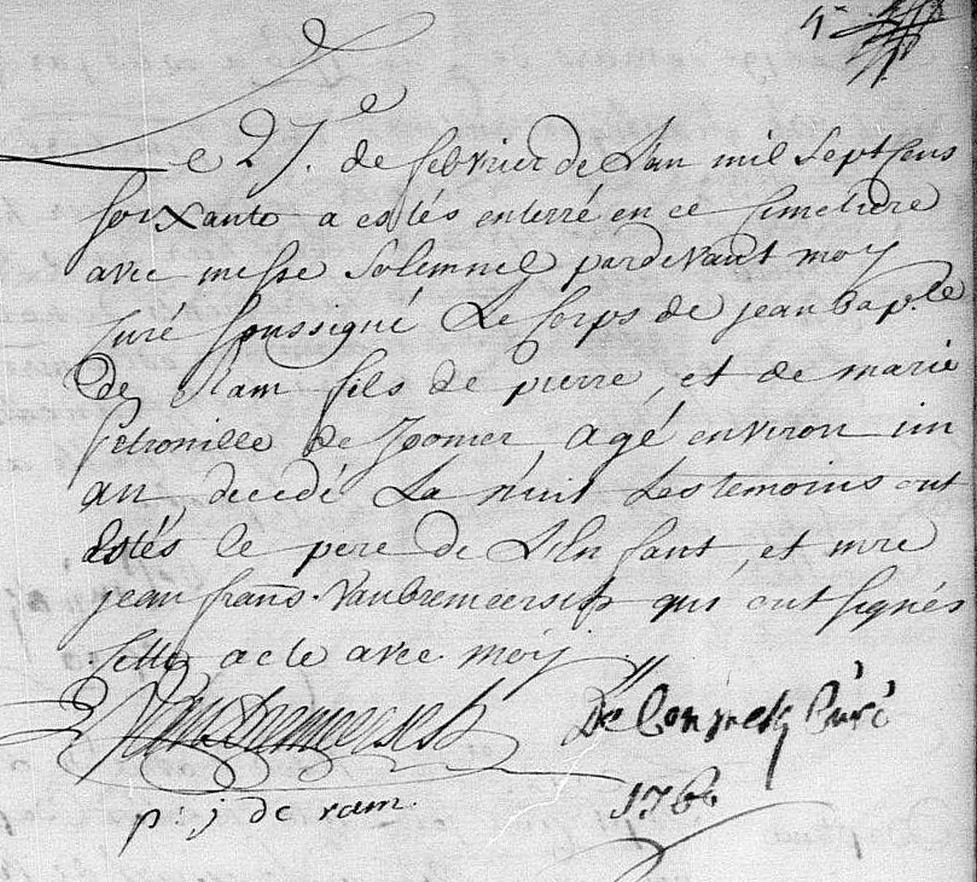 Le 27.e de febvrier de L'an mil Sept Cens
soixante a estés enterré en ce Cimetiere
avec messe Solemnel pardevant moy
curé soussigné Le Corps de jean bap.te
de Ram fils de pierre, et de marie
petronille de agé environ un
an decedé La nuit Les temoins ont
Estés le pere de L'Enfant, et mre
jean frans. Vanbremeersch qui ont signés
cette acte avec moy
Vanbremeersch De Curé
p: j de ram. 1760